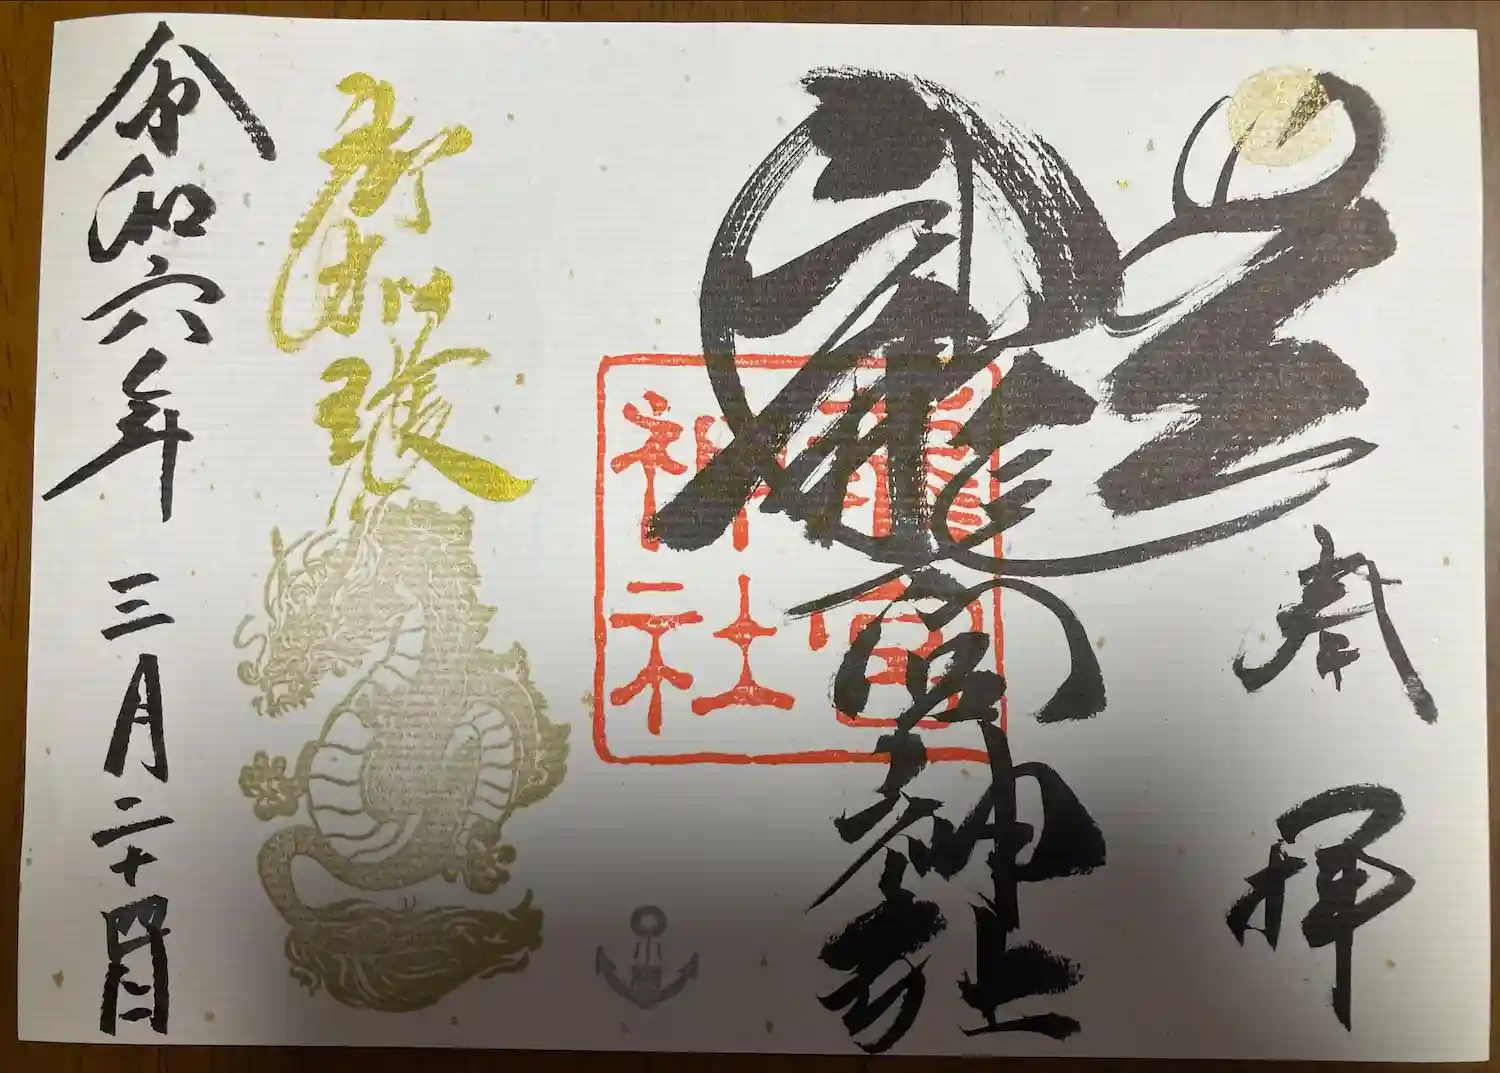 奉拝
龍宮神社
龍宮
神社
令和六年三月二十四日